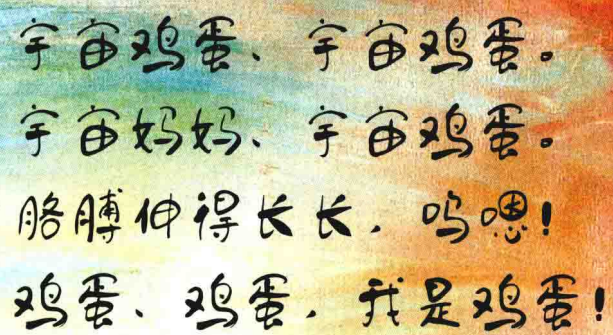 宇宙鸡蛋、宇宙鸡蛋。
宇宙妈妈、宇宙鸡蛋。
胳膊伸得长长，呜嗯！
鸡蛋、鸡蛋，我是鸡蛋！